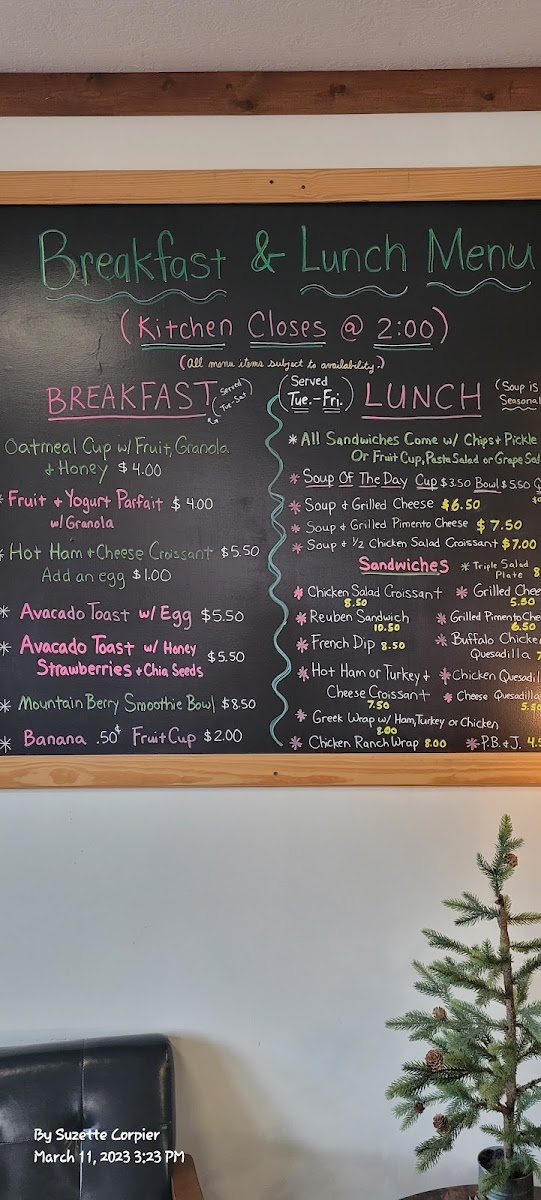 Breakfast & Lunch Menu
(Kitchen Closes @ 2:00)
(All menu items subject to availability.)
BREAKFAST (Served Tue-Sat)
Oatmeal Cup w/ Fruit, Granola
+ Honey $4.00
* Fruit + Yogurt Parfait $4.00
w/ Granola
* Hot Ham + Cheese Croissant $5.50
Add an egg $1.00
* Avacado Toast w/ Egg $5.50
* Avacado Toast w/ Honey
Strawberries + Chia Seeds $5.50
* Mountain Berry Smoothie Bowl $8.50
* Banana .50¢ Fruit Cup $2.00
(Served Tue.-Fri.) LUNCH (Soup is
Seasonal
* All Sandwiches Come w/ Chips + Pickle
Or Fruit Cup, Pasta Salad or Grape Sal
* Soup Of The Day Cup $3.50 Bowl $5.50
* Soup + Grilled Cheese $6.50
* Soup + Grilled Pimento Cheese $7.50
* Soup + 1/2 Chicken Salad Croissant $7.00
Sandwiches * Triple Salad
Plate 8
* Chicken Salad Croissant 8.50
* Grilled Chee 5.50
* Reuben Sandwich 10.50
* Grilled Pimento Che 6.50
* French Dip 8.50
* Buffalo Chicke
Quesadilla 7
* Hot Ham or Turkey +
Cheese Croissant 7.50
* Chicken Quesadil
* Cheese Quesadilla 5.50
* Greek Wrap w/ Ham, Turkey or Chicken 8.00
* Chicken Ranch Wrap 8.00
* P.B. + J. 4.5
By Suzette Corpier
March 11, 2023 3:23 PM